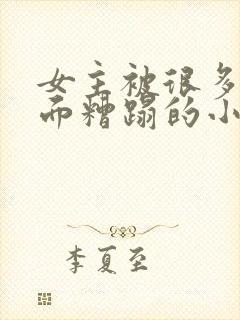 女主被很多
而糟蹋的小
李夏至